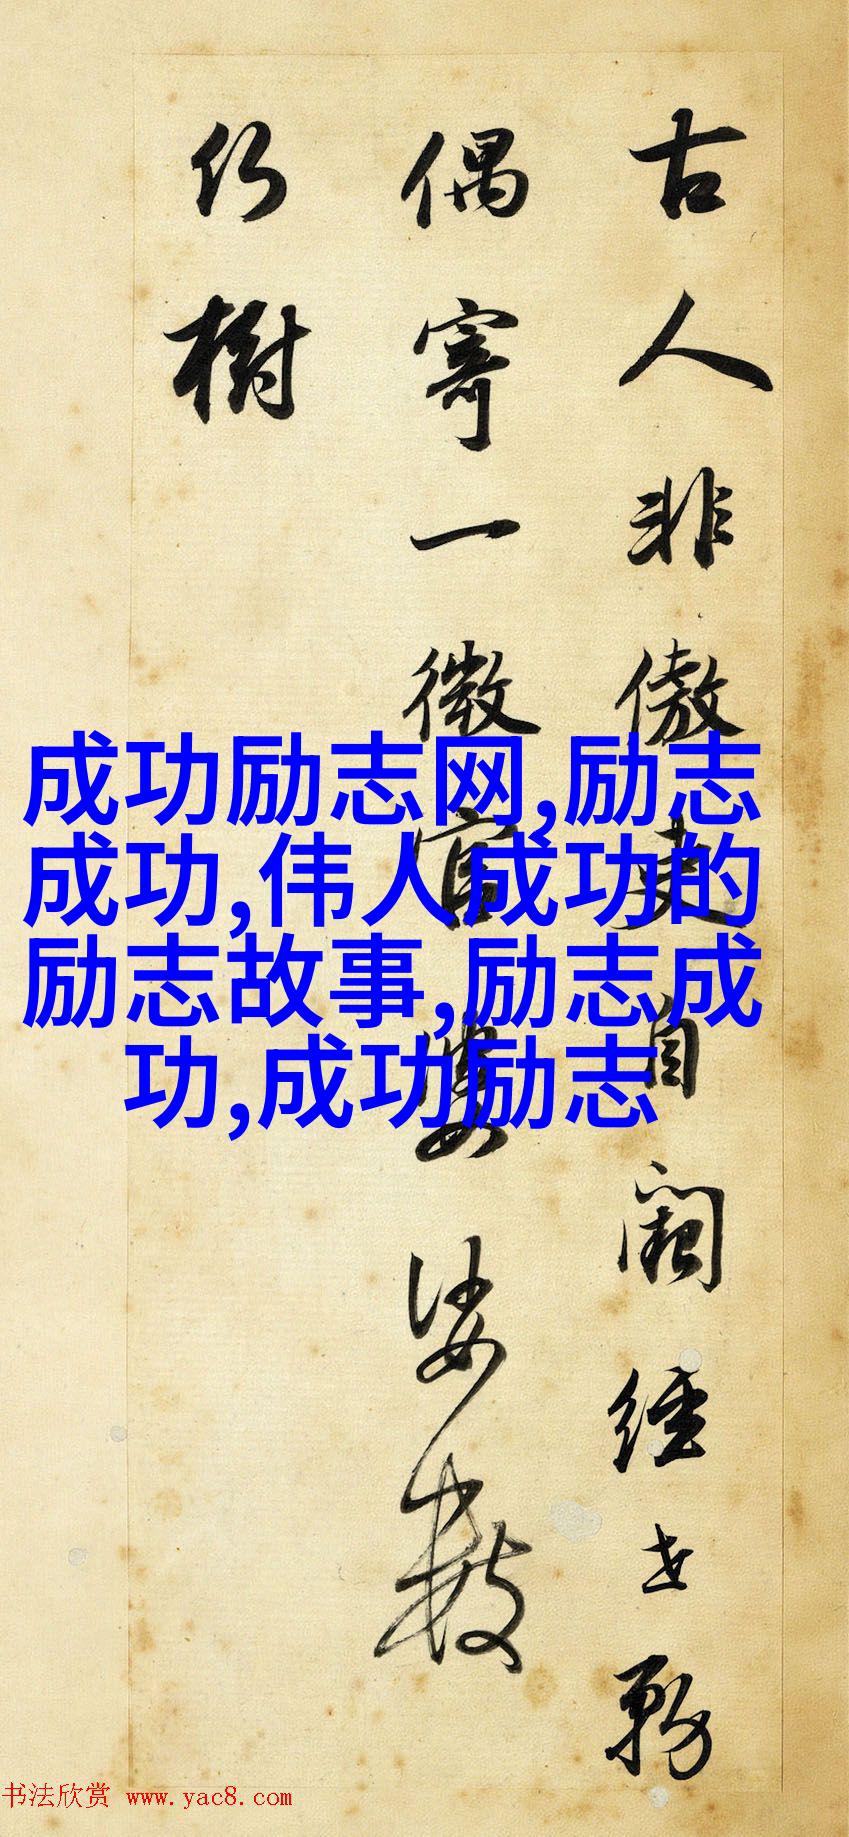 古人非傲吏自闕經世務
偶寄一微官婆娑數
仍樹
成功励志网,励志
成功,伟人成功的
励志故事,励志成
功,成功励志
书法欣赏 www.yac8.com